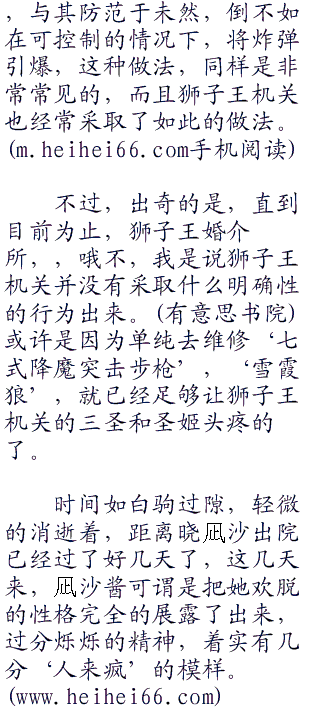 ，与其防范于未然，倒不如
在可控制的情况下，将炸弹
引爆，这种做法，同样是非
常常见的，而且狮子王机关
也经常采取了如此的做法。
(m.heihei66.com手机阅读)
不过，出奇的是，直到
目前为止，狮子王婚介
所，，哦不，我是说狮子王
机关并没有采取什么明确性
的行为出来。(有意思书院)
或许是因为单纯去维修‘七
式降魔突击步枪’，‘雪霞
狼’，就已经足够让狮子王
机关的三圣和圣姬头疼的
了。
时间如白驹过隙，轻微
的消逝着，距离晓凪沙出院
已经过了好几天了，这几天
来，凪沙酱可谓是把她欢脱
的性格完全的展露了出来，
过分烁烁的精神，着实有几
分‘人来疯’的模样。
(www.heihei66.com)